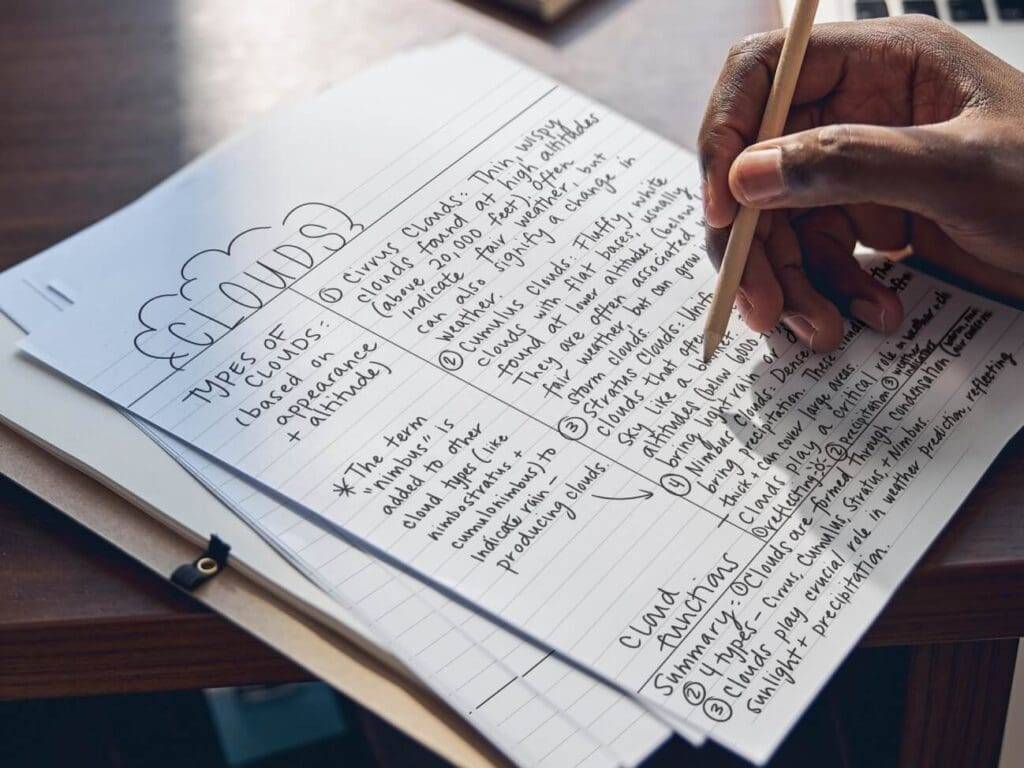 CLOUDS
TYPES OF
CLOUDS:
(based on
appearance
+ altitude)
*The term
"nimbus" is
added to other
cloud types (like
nimbostratus +
cumulonimbus) to
indicate rain-
producing clouds.
① Cirrus Clouds: Thin, wispy
clouds found at high altitudes
(above 20,000 feet). Often
indicate fair weather, but
can also signify a change in
weather.
② Cumulus Clouds: Fluffy, white
clouds with flat bases; usually
found at lower altitudes (below
They are often associated
fair weather but can grow
storm clouds
③ Stratus Clouds:
clouds that
sky like a
altitudes (below 6000
bring light rain or
① Nimbus Clouds: Dense
bring precipitation. These
think + can cover large areas.
Cloud
functions
Clouds play a critical role in weather
① reflecting ② precipitation ③
Summary: ① Clouds are formed through condensation
② 4 types - Cirrus, Cumulus, Stratus + Nimbus
③ Clouds play crucial role in weather prediction, reflecting
sunlight + precipitation.